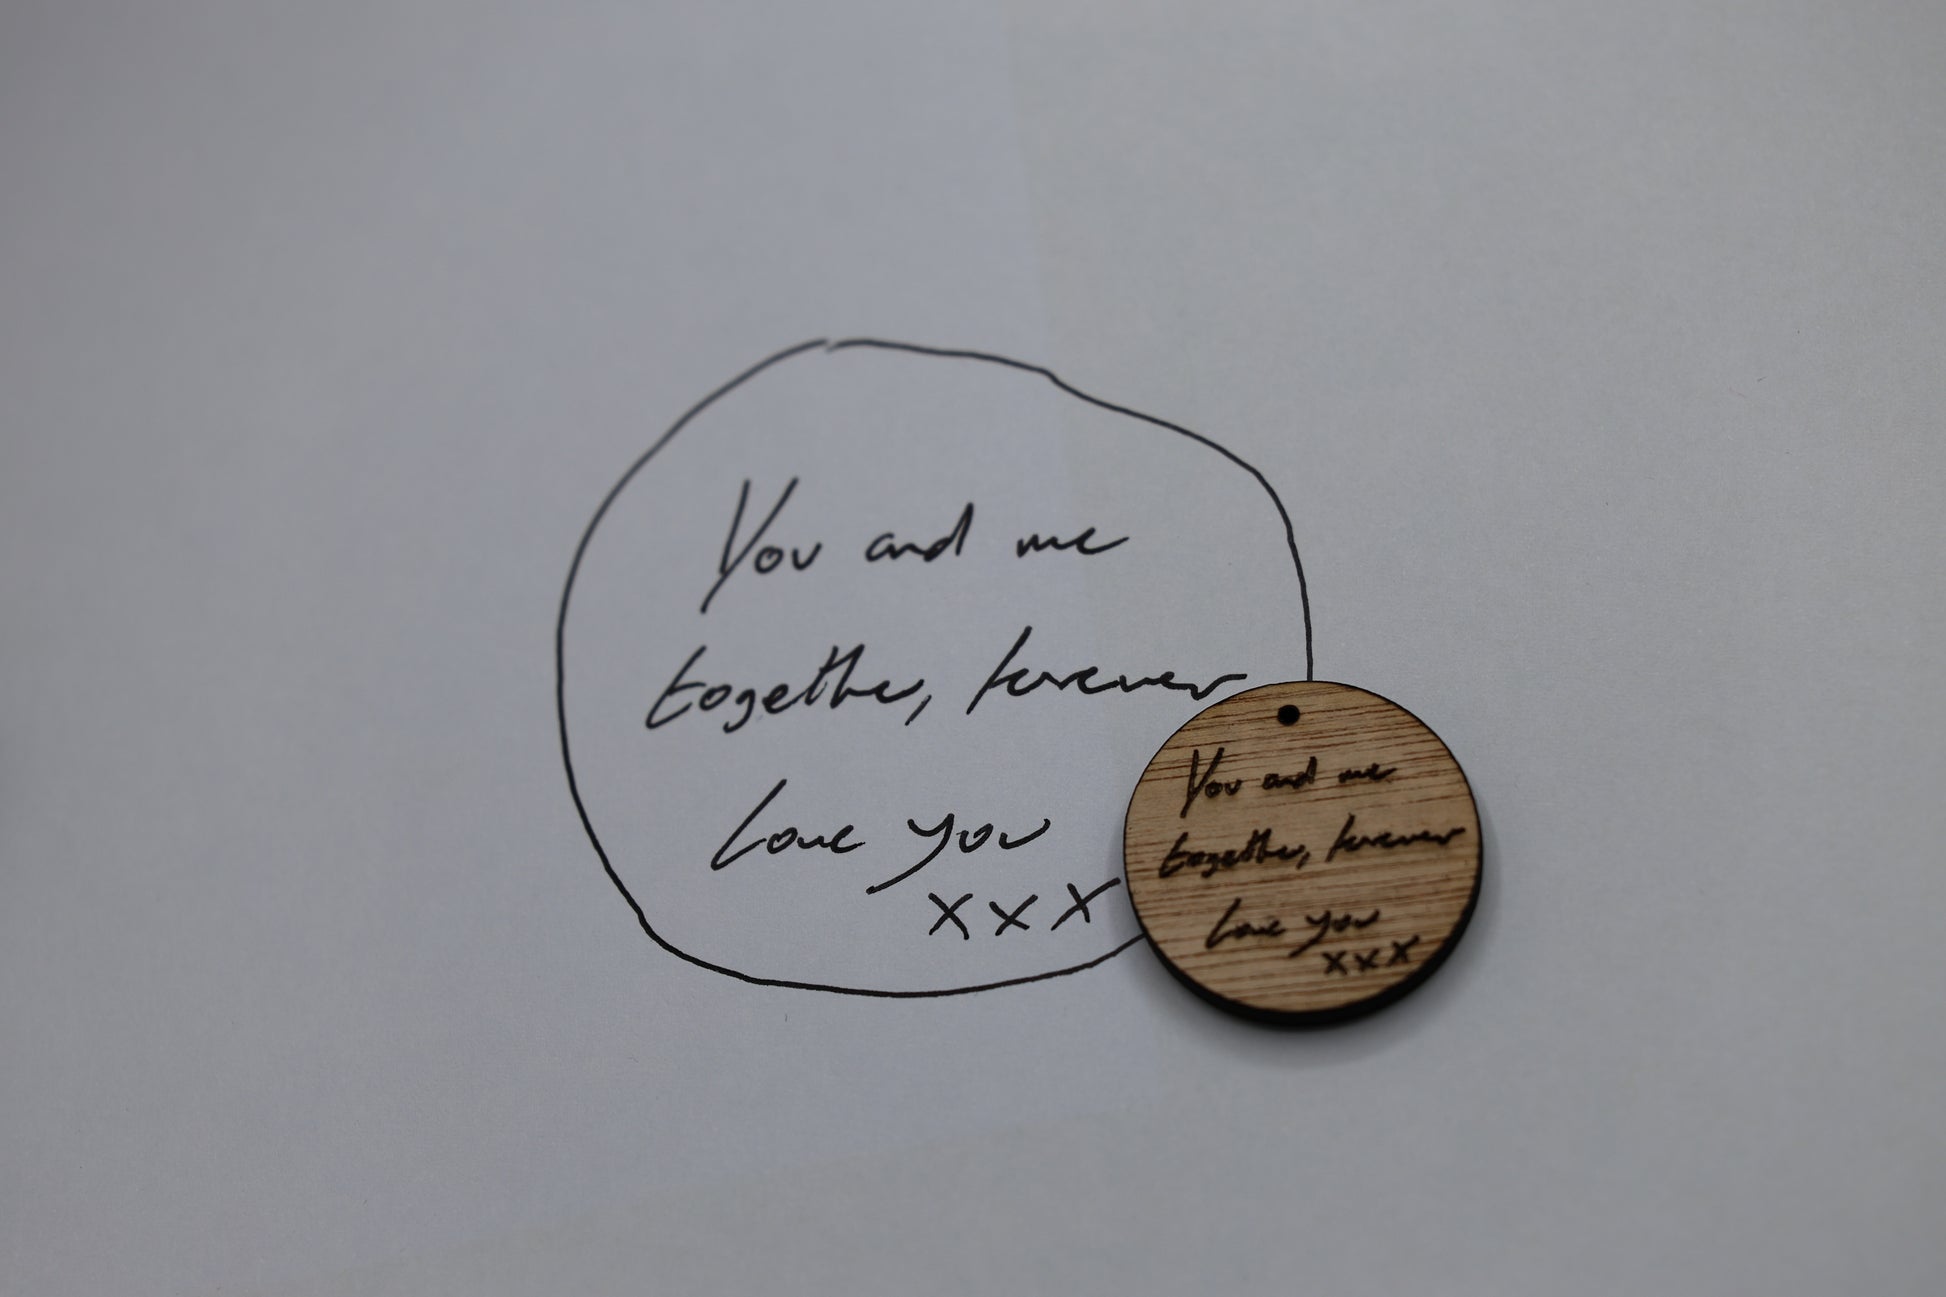 You and me
together, forever
Love you
x x x
You and me
together, forever
Love you
x x x